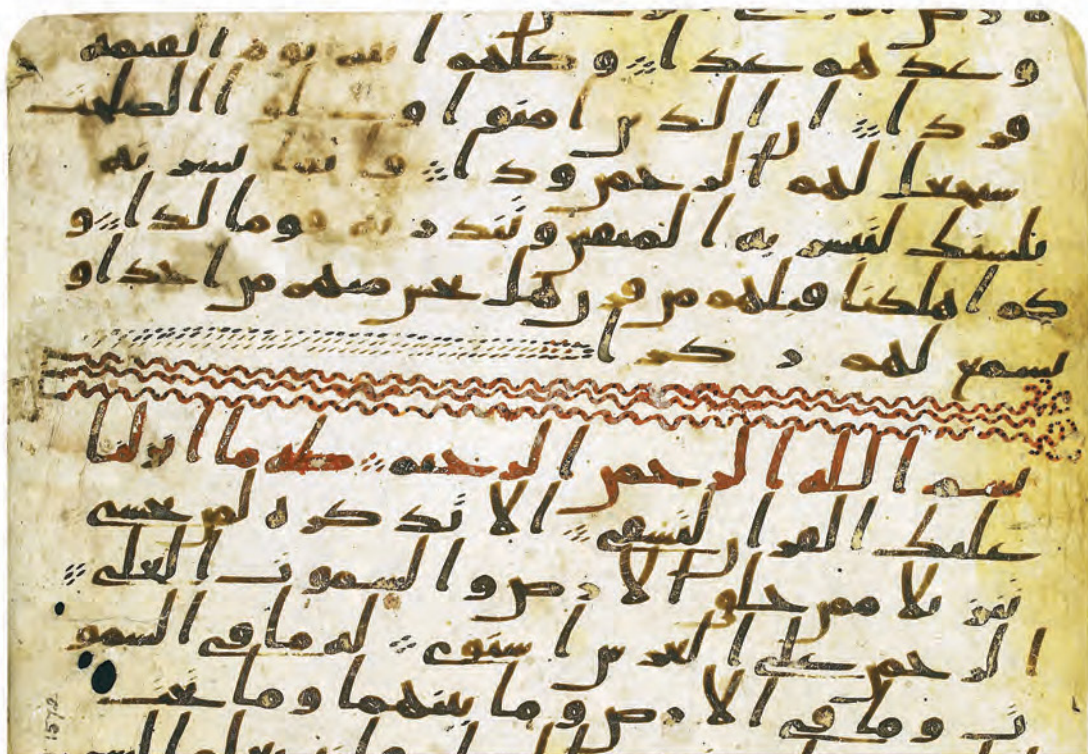 وعدهم عدا وكلهم اتيه يوم القيمه
فردا ان الذين امنوا وعملوا الصلحت
سيجعل لهم الرحمن ودا فانما يسرنه
بلسنك لتبشر به المتقين وتنذر به قوما لدا و
كم اهلكنا قبلهم من قرن هل تحس منهم من احد او
تسمع لهم ركزا
بسم الله الرحمن الرحيم طه ما انزلنا
عليك القران لتشقى الا تذكره لمن يخشى
تنزيلا ممن خلق الارض والسموت العلى
الرحمن على العرش استوى له ما في السمو
ت وما في الارض وما بينهما وما تحت
1572